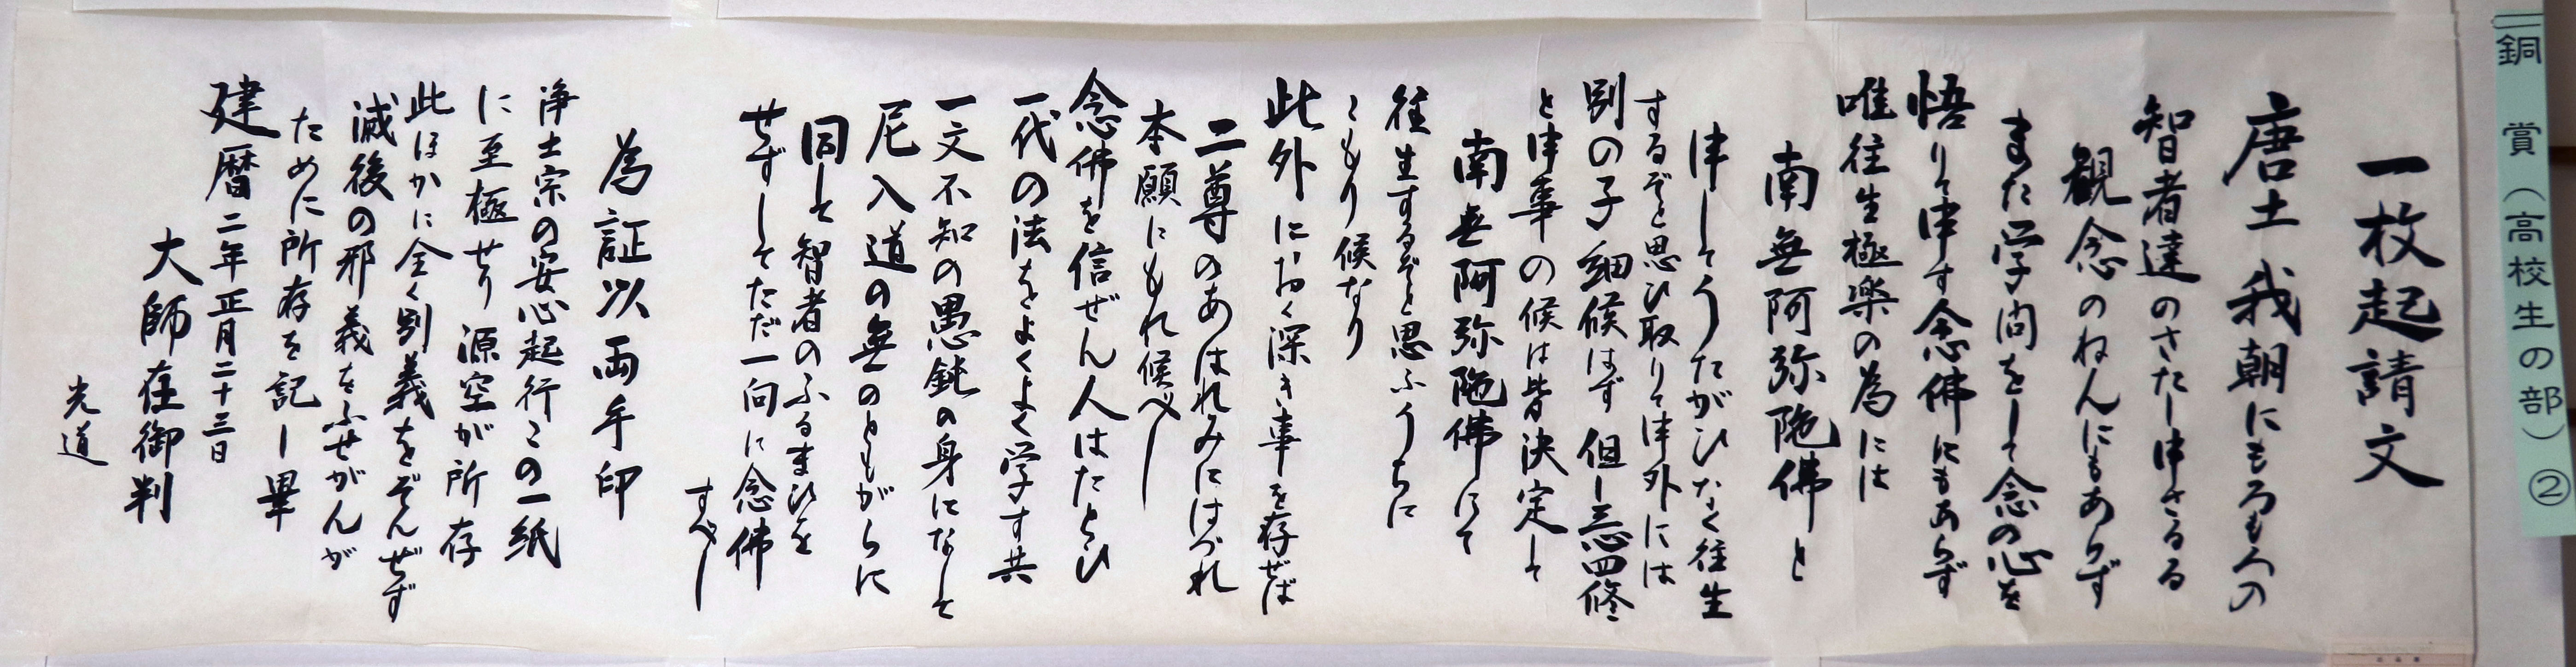 銅 賞（高校生の部）②
一枚起請文
唐土我朝にもろもろの
智者達のさたし申さるる
観念のねんにもあらず
また学問をして念の心を
悟りて申す念佛にもあらず
唯往生極楽の為には
南無阿弥陀佛と
申してうたがひなく往生
するぞと思ひ取りて申外には
別の子細候はず但し三心四修
と申事の候は皆決定して
南無阿弥陀佛にて
往生するぞと思ふうちに
こもり候なり
此外におく深き事を存ぜば
二尊のあはれみにはづれ
本願にもれ候べし
念佛を信ぜん人はたとひ
一代の法をよくよく学す共
一文不知の愚鈍の身になして
尼入道の無のともがらに
同して智者のふるまひを
せずしてただ一向に念佛
すべし
為証以両手印
浄土宗の安心起行この一紙
に至極せり源空が所存
此ほかに全く別義をぞんぜず
滅後の邪義をふせがんが
ために所存を記し畢
建暦二年正月二十三日
大師在御判
光道